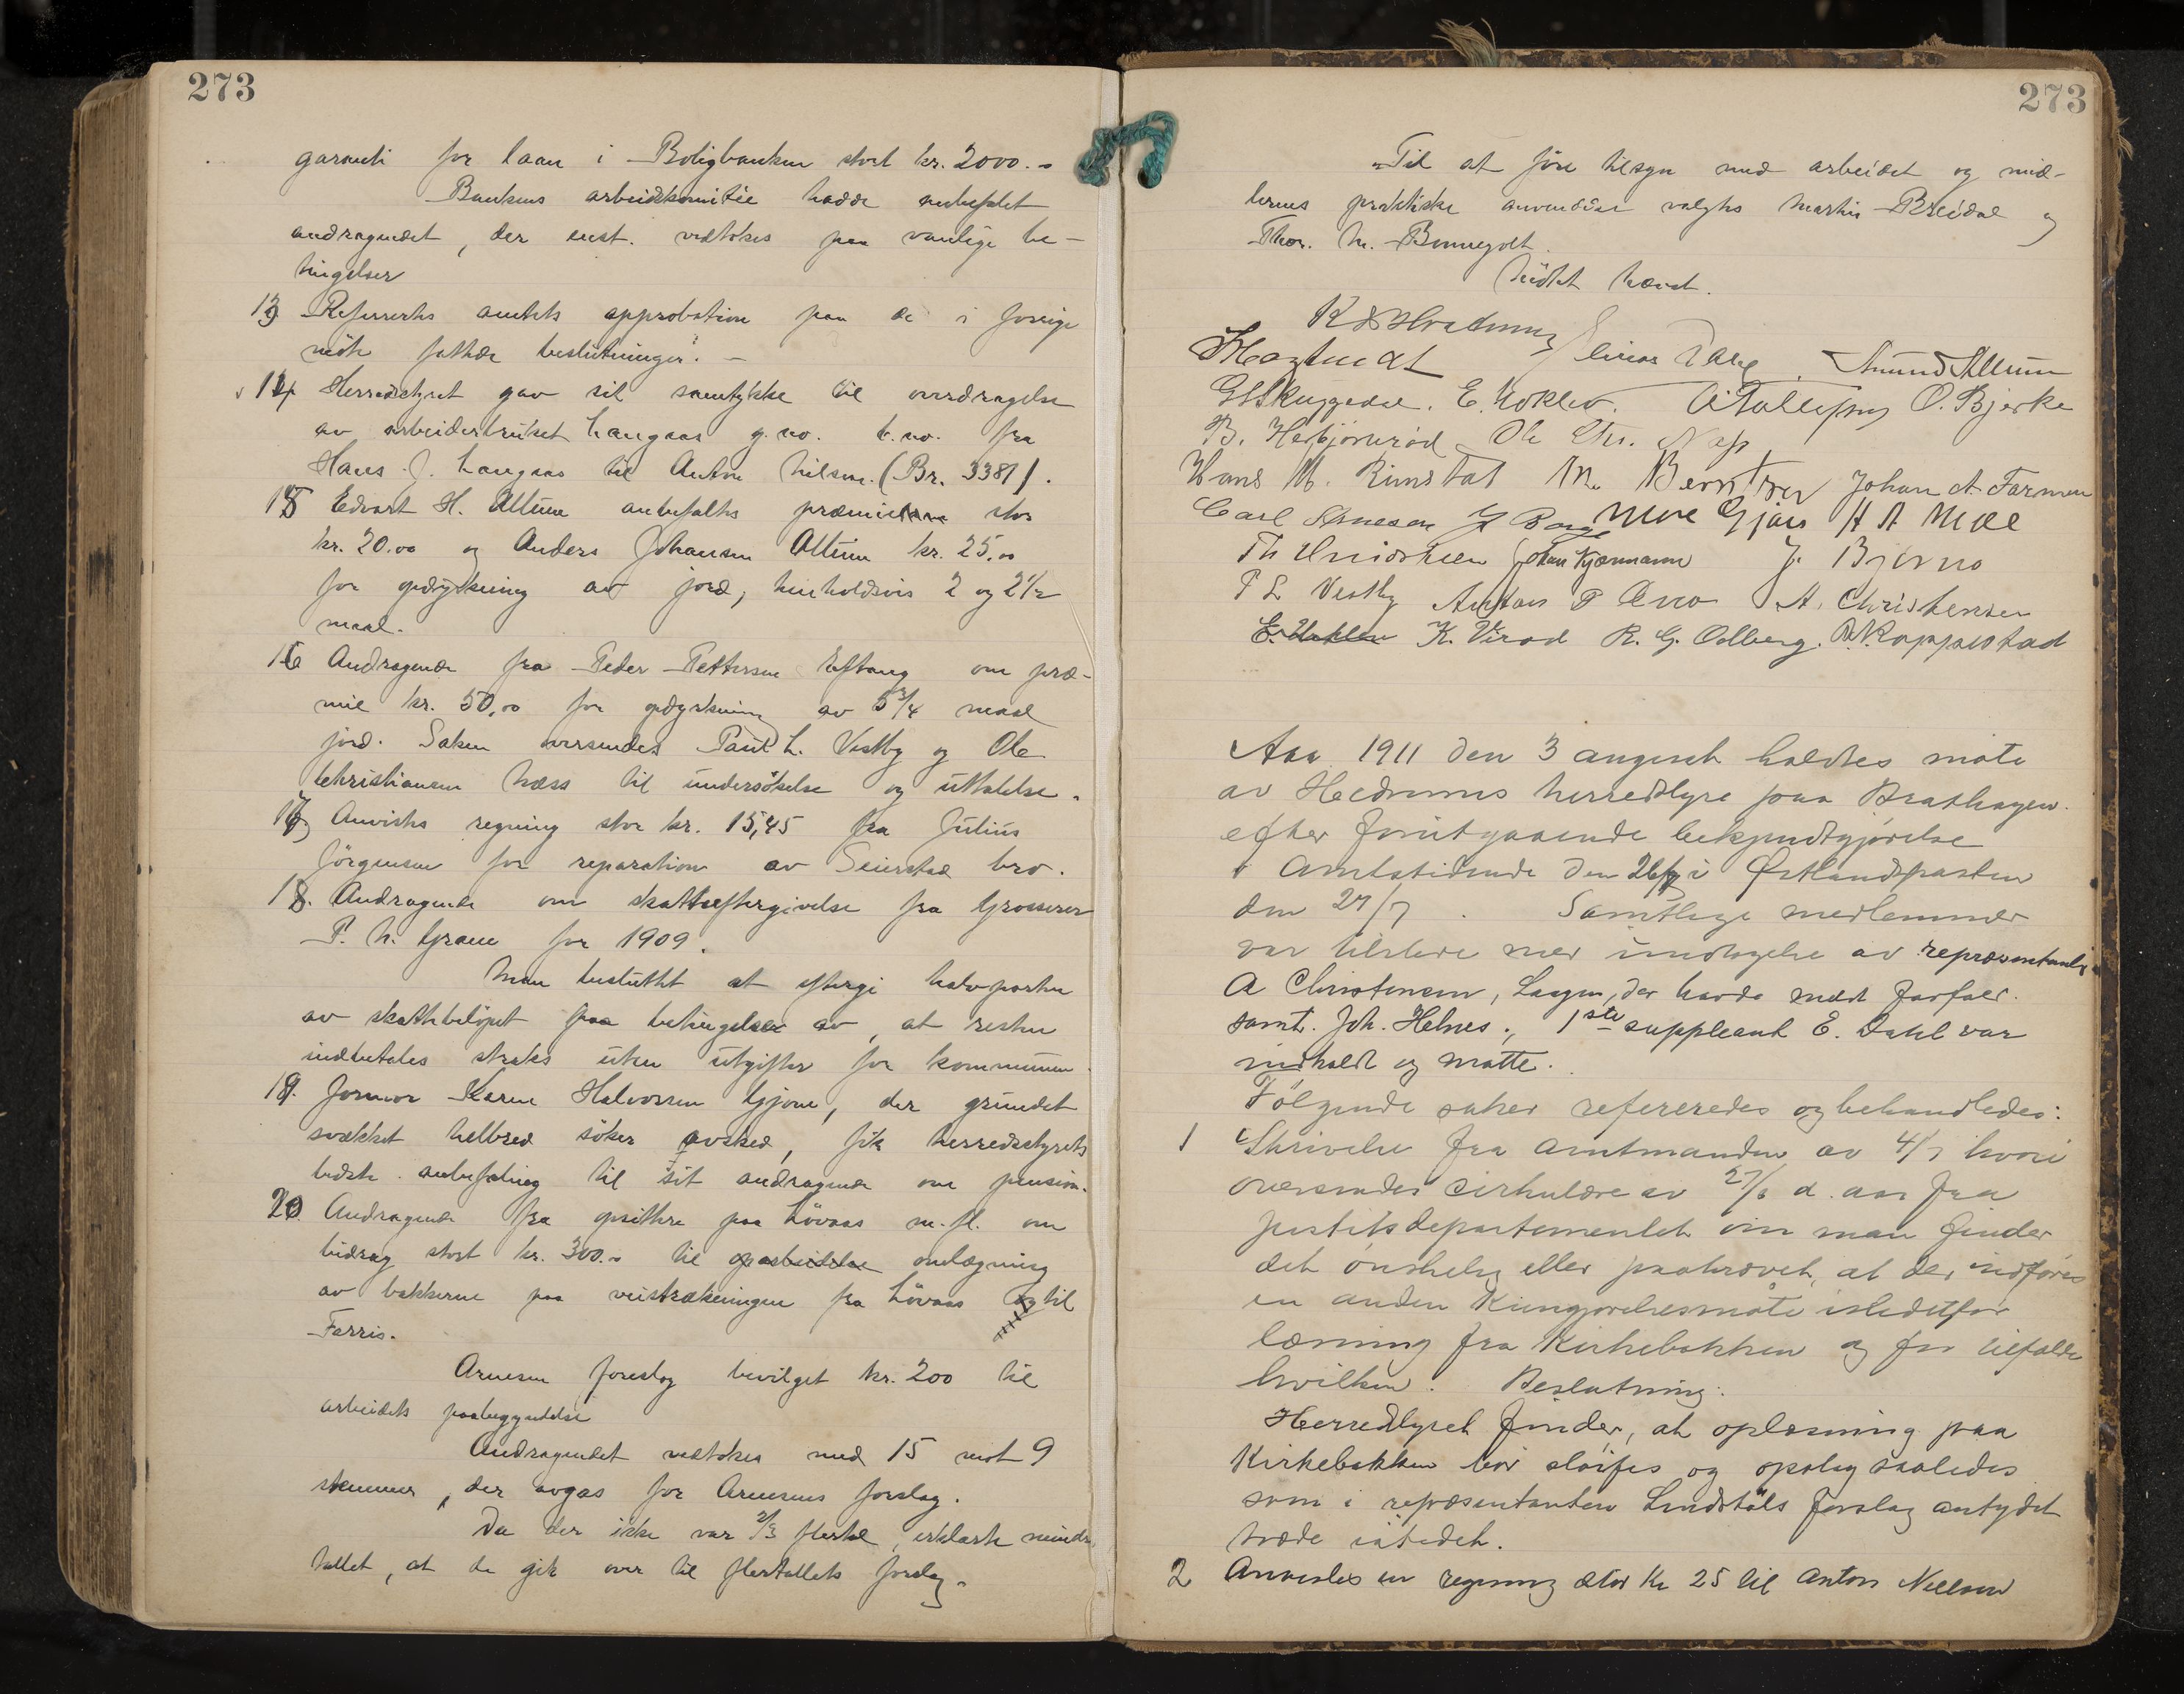 273
garanti for laan i Boligbanken stort kr. 2000.-
Bankens arbeidskomitée hadde anbefalet
andragendet, der enst. vedtokes paa vanlige be-
tingelser
13 Referertes amtets approbation paa de i forrige
møte fattede beslutninger. -
14 Herredstyret gav sit samtykke til overdragelse
av arbeiderbruket Langaas g.no. b.no. fra
Hans J. Langaas til Anton Nilsen. (Br. 3381).
15 Edvart H. Allum anbefaltes præmie stor
kr. 20.00 og Anders Johansen Allum kr. 25.00
for opdyrkning av jord, henholdsvis 2 og 2 1/2
maal.
16 Andragende fra Peder Pettersen Eftang om præ-
mie kr. 50,00 for opdyrkning av 5 3/4 maal
jord. Saken oversendes Paul L. Vestby og Ole
Christiansen Næss til undersøkelse og uttalelse.
17 Anvistes regning stor kr. 15,45 fra Julius
Jörgensen for reparation av Seierstad bro.
18. Andragende om skatteeftergivelse fra Grosserer
P. N. Grane for 1909.
Man besluttet at eftergi halvparten
av skattebeløpet paa betingelse av, at resten
indbetales straks uten utgifter for kommunen.
19. Jormor Karen Halvorsen Gjone, der grundet
svækket helbred søker avsked, fik herredsstyrets
bedste anbefaling til sit andragende om pension.
20 Andragende fra opsittere paa Løvaas m.fl. om
bidrag stort kr. 300.- til oparbeidelse omlægning
av bakkerne paa veistrækningen fra Løvaas og til
Farris.
Arnesen foreslog bevilget kr. 200 til
arbeidets paabegyndelse
Andragendet vedtokes med 15 mot 9
stemmer, der avgas for Arnesens forslag.
Da der ikke var 2/3 flertal, erklærte mindre
tallet, at de gik over til flertallets forslag.
273
Til at føre tilsyn med arbeidet og mid-
lernes praktiske anvendelse valgtes Martin Breidal og
Thor. M. Bommegolt.
Møtet hævet.
Einar Dahl. Amund Allum
G Skuggedal. E. Uoklev. A Tollefsen O. Bjerke
B. Hebjörnröd Ole Chr. Næss
Hans M. Rimstad M. Berntsen Johan A. Farmen
Carl Arnesen J Berg More Gjøn H A Moe
Johan Kjærmann J. Bjørno
P L Vestby Anton P Øvro A. Christensen
E. Uoklev K. Virod R. G. Odberg. A. Koppestad
Aar 1911 den 3 august holdtes møte
av Hedrums herredstyre paa Brathagen
efter forutgaaende bekjendtgjørelse
i Amtstidende den 26/7 i Østlandsposten
den 27/7. Samtlige medlemmer
var tilstede med undtagelse av repræsentant
A Christensen, Laagen, der havde meldt forfald.
samt. Joh. Helnes., 1ste suppleant E. Dahl var
indkaldt og møtte.
Følgende saker refereredes og behandledes:
1 Skrivelse fra amtmanden av 4/7 hvori
oversendes cirkulære av 27/6 d. aar fra
justitsdepartementet om man finder
det ønskelig eller paakrævet, at der indføres
en anden kungjørelsesmaate istedetfor
læsning fra Kirkebakken og for tilfælde
hvilken. Beslutning:
Herredstyret finder, at oplæsning paa
Kirkebakken bør sløifes og opslag saaledes
som i repræsentanten Lindstøls forslag antydet
træde istedet.
2 Anvistes en regning stor Kr 25 til Anton Nielsen